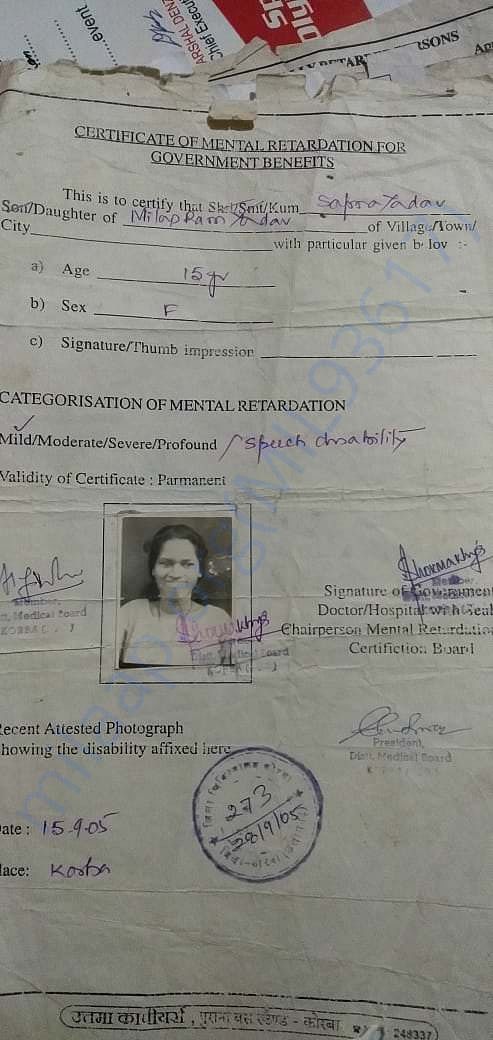 ...event
Chief Execu
ARSHAL DENZ
SONS
CERTIFICATE OF MENTAL RETARDATION FOR
GOVERNMENT BENEFITS
This is to certify that Shri/Smt/Kum Sapna Yadav
Son/Daughter of Milap Ram Yadav of Village/Town/
City with particular given b lov :-
a) Age 15 yr
b) Sex F
c) Signature/Thumb impression
CATEGORISATION OF MENTAL RETARDATION
Mild/Moderate/Severe/Profound / Speech disability
Validity of Certificate : Parmanent
Member,
tt. Medical Board
KORBA
Member,
Signature of Government
Doctor/Hospital with Seal
Chairperson Mental Retardation
Certifiction Board
Distt. Medical Board
Recent Attested Photograph
howing the disability affixed here
President,
Distt. Medical Board
273
28/9/05
ate : 15.9.05
lace: Korba
उत्तमा कापीयर्स , पुराना बस स्टेण्ड - कोरबा 248337
milaap.org(MIL936171)